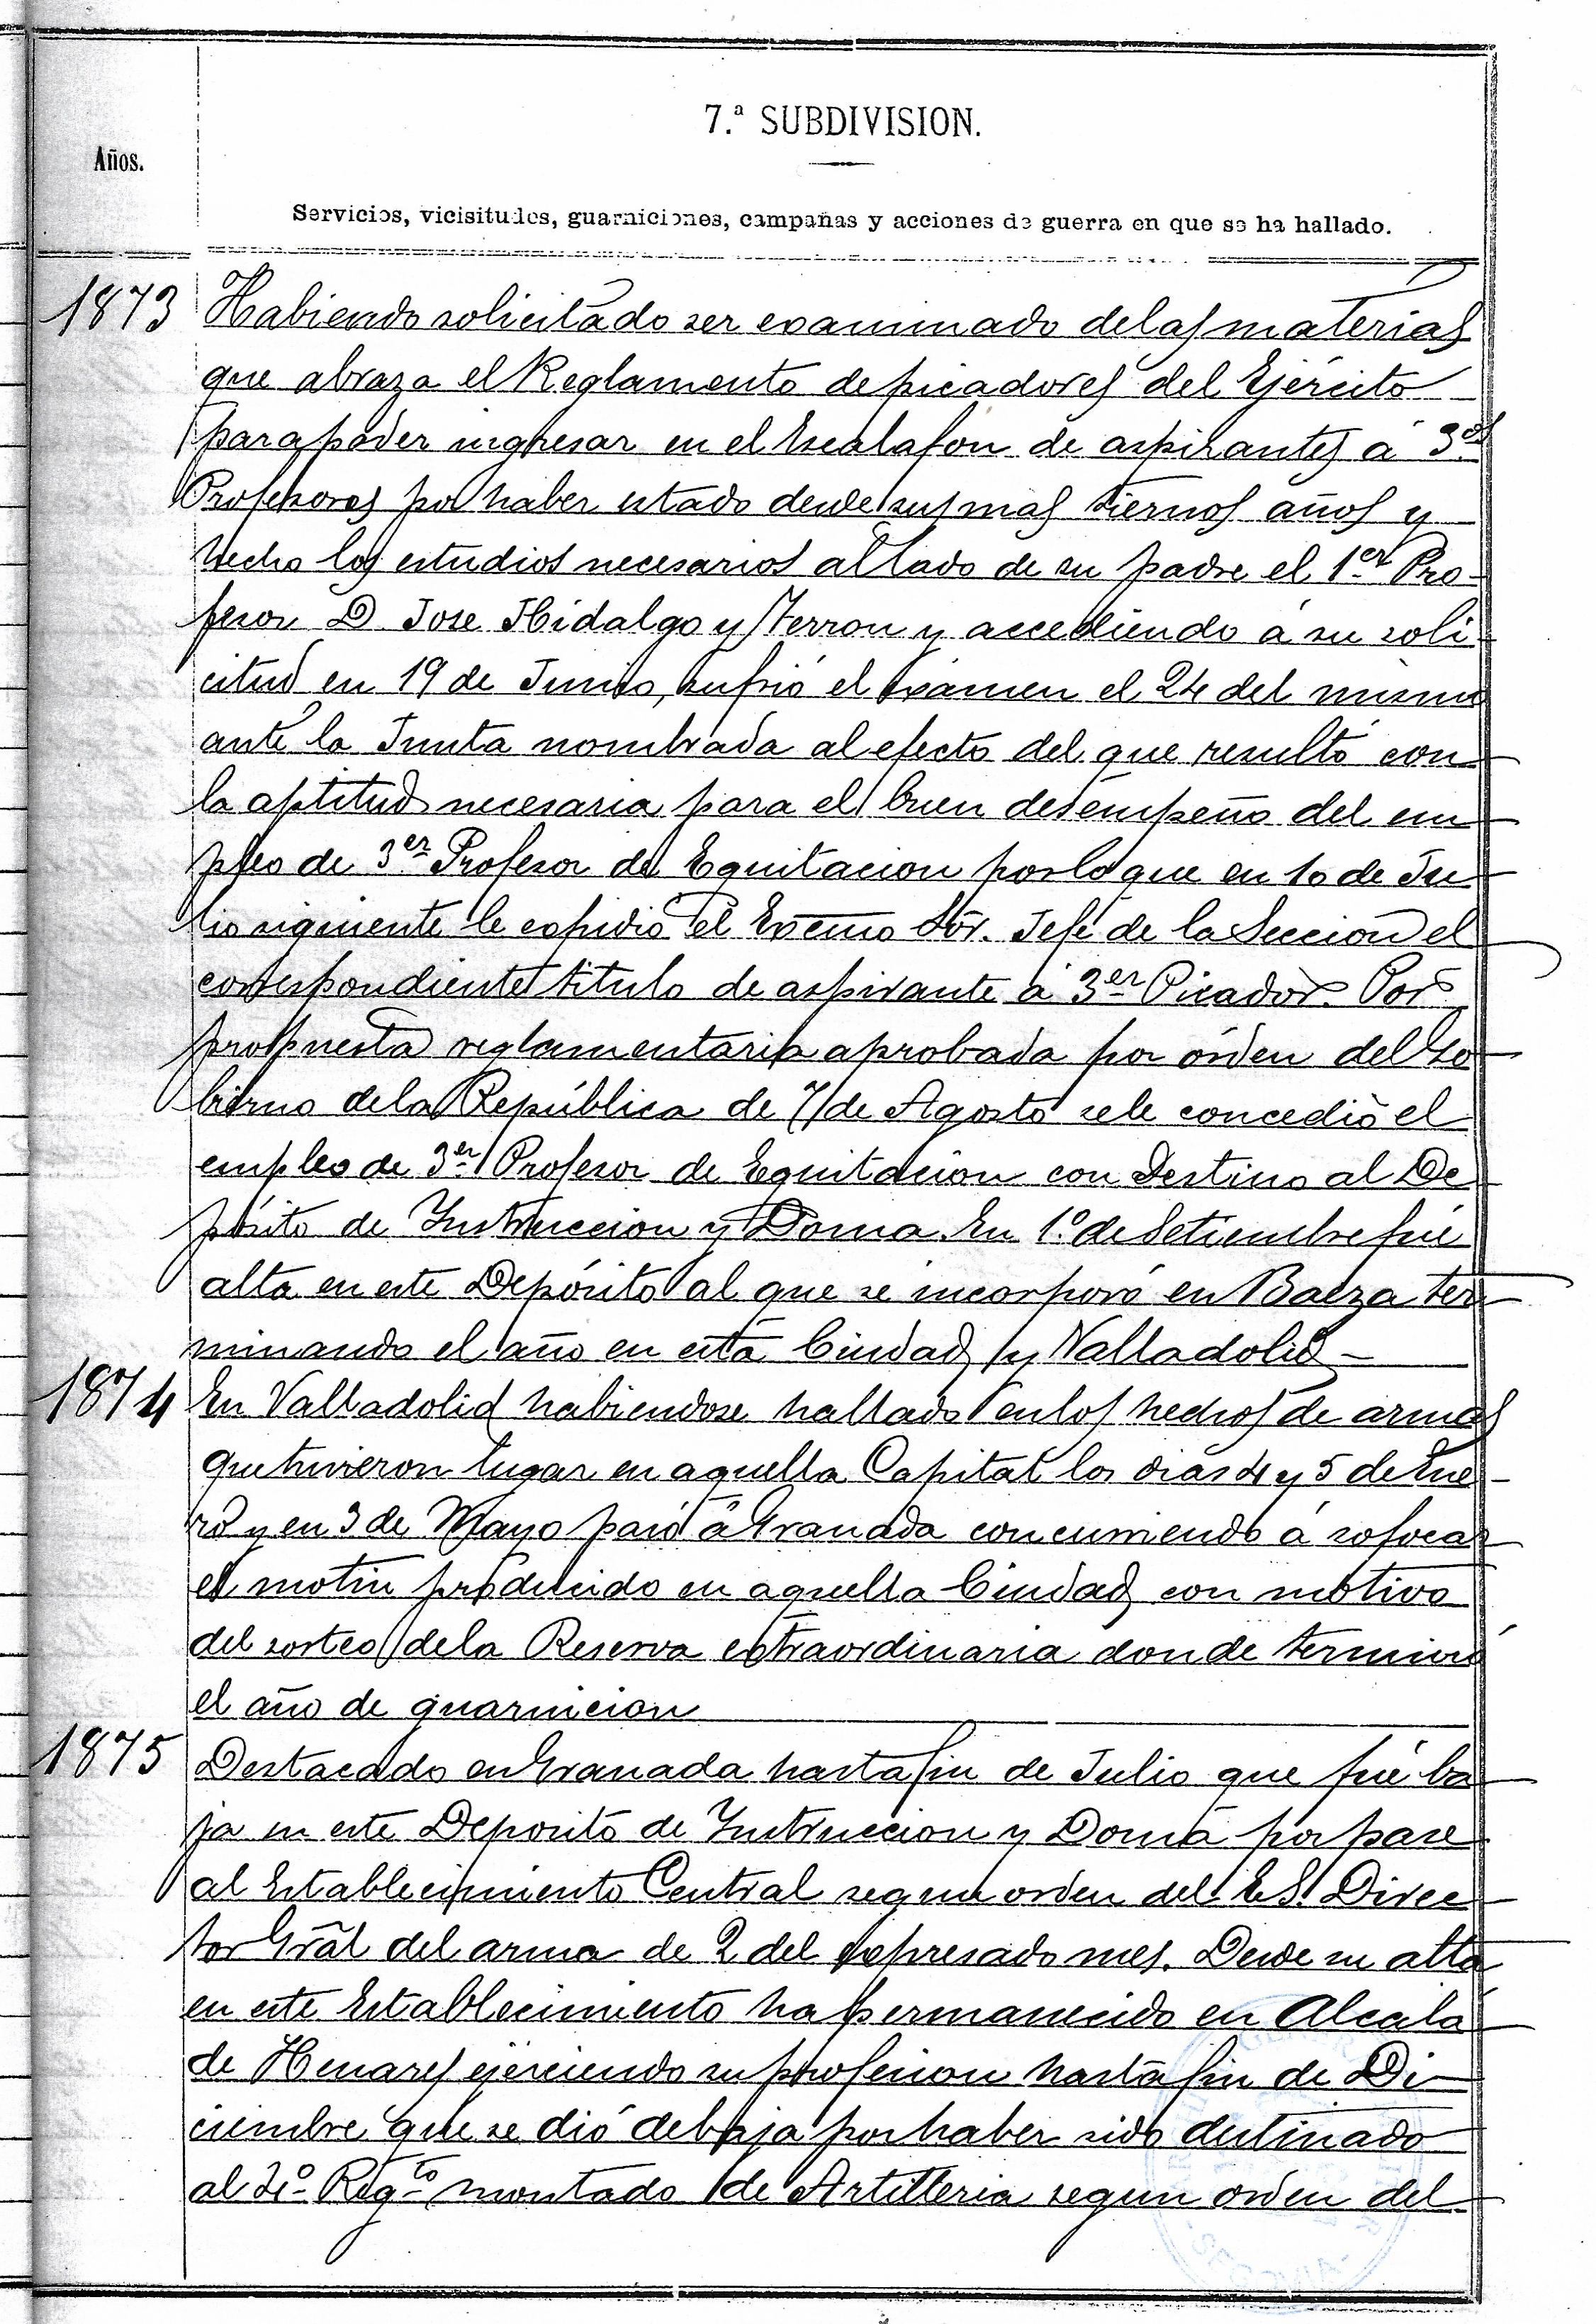 7.ª SUBDIVISION.
Años.
Servicios, vicisitudes, guarniciones, campañas y acciones de guerra en que se ha hallado.
1873 Habiendo solicitado ser examinado de las materias
que abraza el Reglamento de picadores del Ejército
para poder ingresar en el Escalafon de aspirantes á 3.os
Profesores por haber estado desde sus mas tiernos años y
hecho los estudios necesarios al lado de su padre el 1.er Pro-
fesor D Jose Hidalgo y Terron y accediendo á su soli-
citud en 19 de Junio, sufrió el exámen el 24 del mismo
ante la Junta nombrada al efecto del que resultó con
la aptitud necesaria para el buen desempeño del em
pleo de 3.er Profesor de Equitacion por lo que en 10 de Ju
lio siguiente le espidió el Excmo Sor. Jefe de la Seccion el
correspondiente titulo de aspirante á 3.er Picador. Por
propuesta reglamentaria aprobada por órden del Go
bierno de la República de 7 de Agosto se le concedió el
empleo de 3.er Profesor de Equitacion con Destino al De
pósito de Instruccion y Doma. En 1.º de Setiembre fué
alta en este Depósito al que se incorporó en Baeza ter
minando el año en esta Ciudad y Valladolid
1874 En Valladolid habiendose hallado en los hechos de armas
que tuvieron lugar en aquella Capital los dias 4 y 5 de Ene-
ro y en 3 de Mayo pasó á Granada concurriendo á sofocar
el motin producido en aquella Ciudad con motivo
del sorteo de la Reserva extraordinaria donde terminó
el año de guarnicion
1875 Destacado en Granada hasta fin de Julio que fué ba
ja en este Deposito de Instruccion y Doma por pase
al Establecimiento Central segun orden del E.S. Direc
tor Grāl del arma de 2 del expresado mes. Desde su alta
en este Establecimiento ha permanecido en Alcalá
de Henares ejerciendo su profesion hasta fin de Di-
ciembre que se dió de baja por haber sido destinado
al 2.º Reg.to montado de Artilleria segun orden del